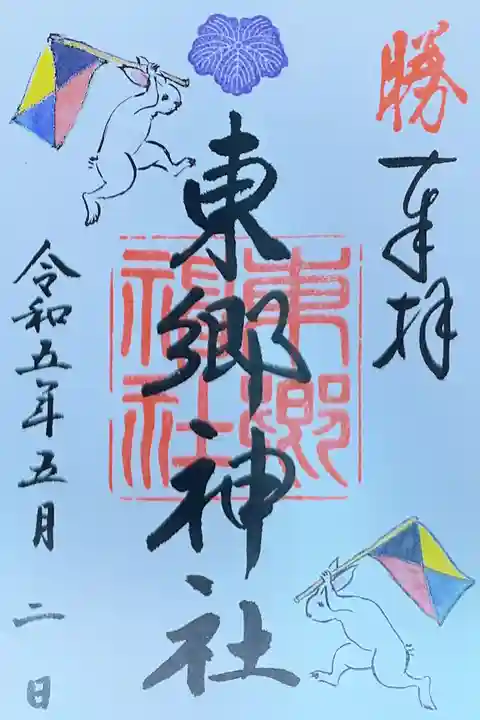 勝
奉拝
東郷神社
東郷神社
令和五年五月二日